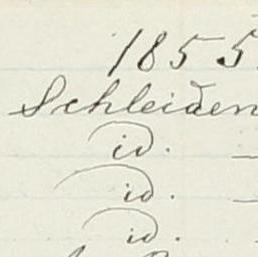 1855.
Schleiden
id.
id.
id.